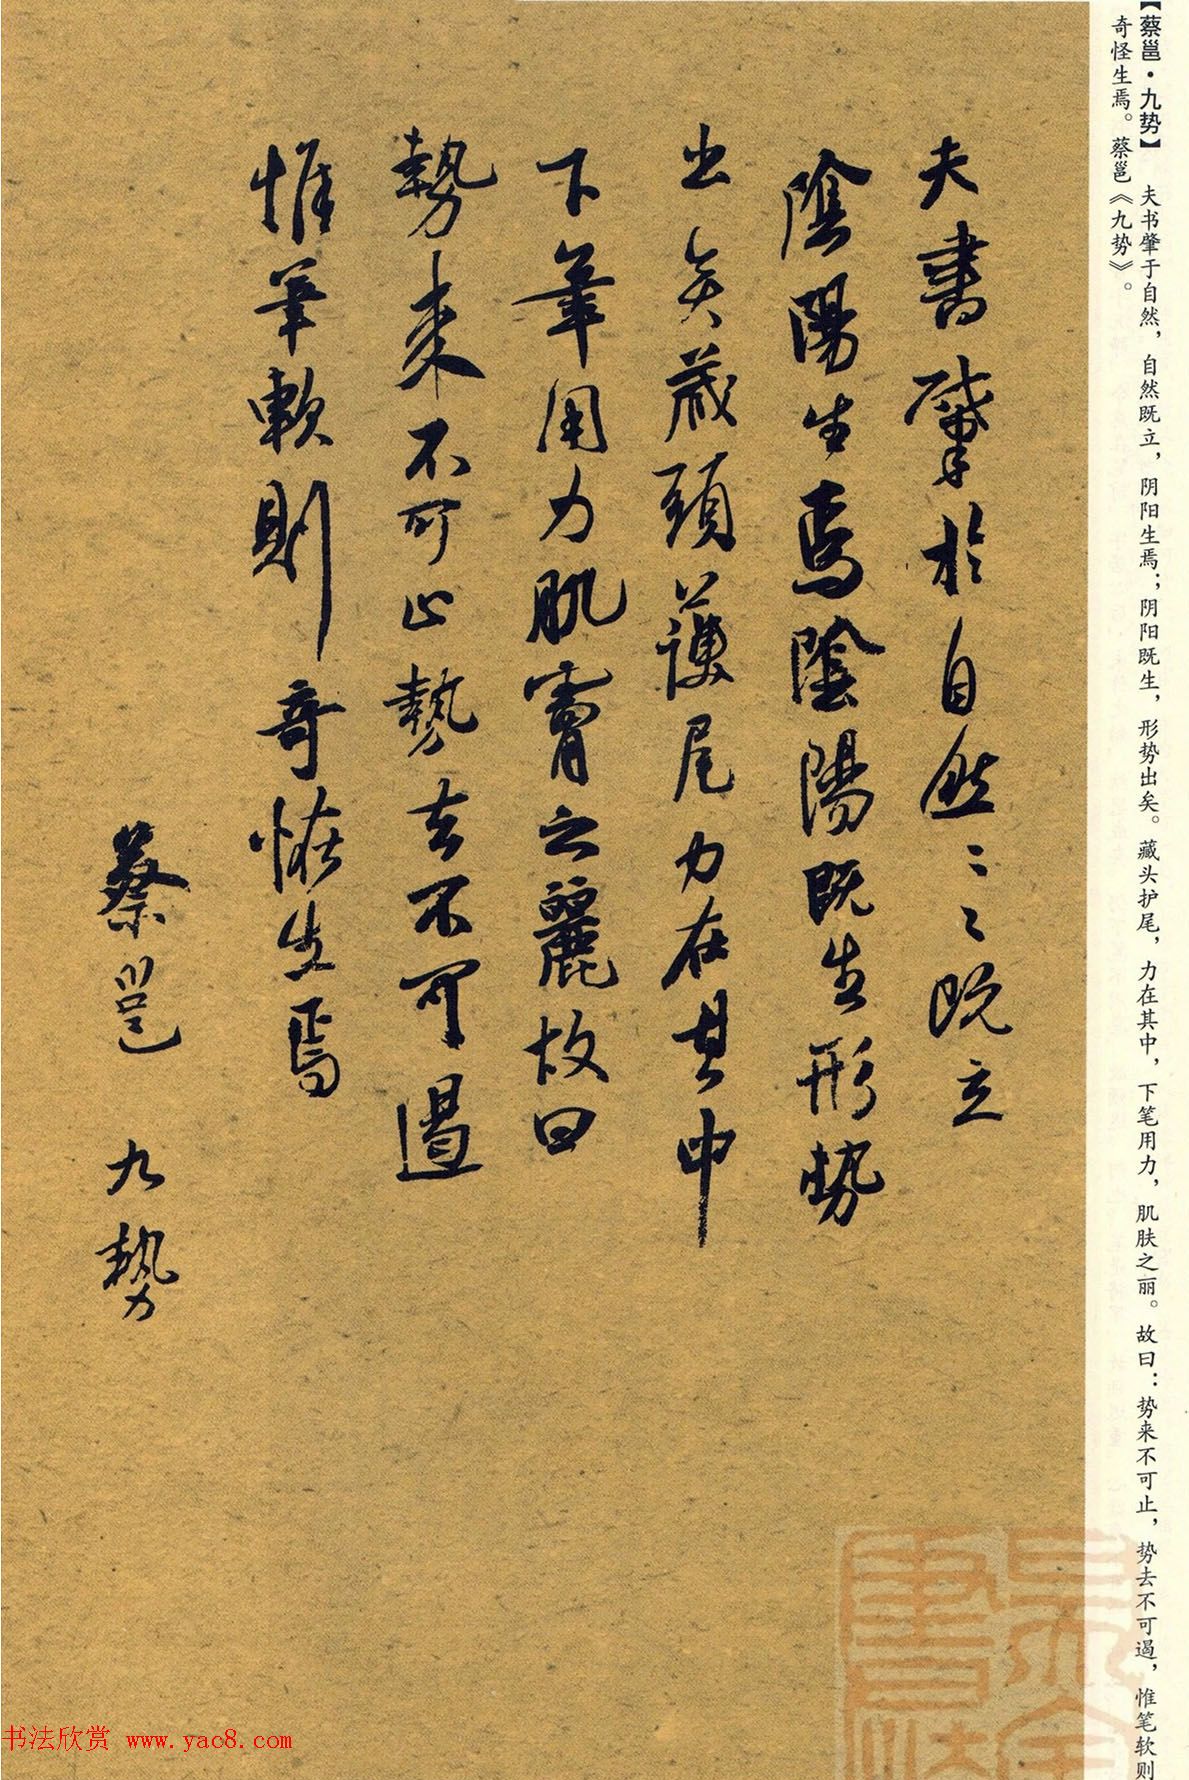 【蔡邕·九势】 夫书肇于自然，自然既立，阴阳生焉；阴阳既生，形势出矣。藏头护尾，力在其中，下笔用力，肌肤之丽。故曰：势来不可止，势去不可遏，惟笔软则
奇怪生焉。蔡邕《九势》。
夫書肇於自然〻〻既立
陰陽生焉陰陽既生形勢
出矣藏頭護尾力在其中
下筆用力肌膚之麗故曰
勢來不可止勢去不可遏
惟筆軟則奇怪生焉
蔡邕 九勢
书法欣赏 www.yac8.com